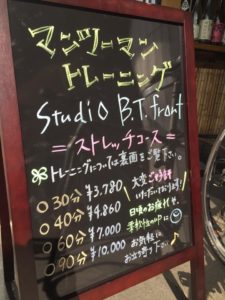 マンツーマン
トレーニング
Studio B.T.front
= ストレッチコース =
トレーニングについては裏面をご覧下さい。
○30分 ¥3.780
○40分 ¥4.860
○60分 ¥7.000
○90分 ¥10.000
大変ご好評を
いただいております!
日頃のお疲れや、
柔軟性UPに
お気軽に
お立ち寄り下さい